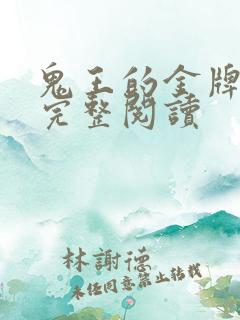 鬼王的金牌
完整閱讀
林謝德
未经同意禁止转载